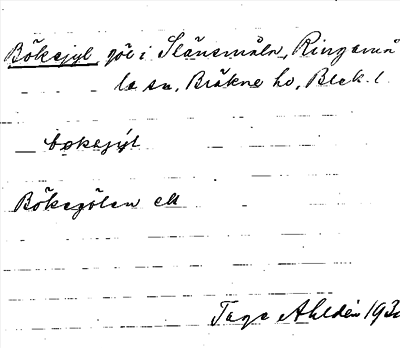 Bökejyl göl i Slänsmåla, Ringamå
la sn, Bräkne hd, Blek. l.
bøkajýl
Bökegölen ek
Tage Ahldén 193